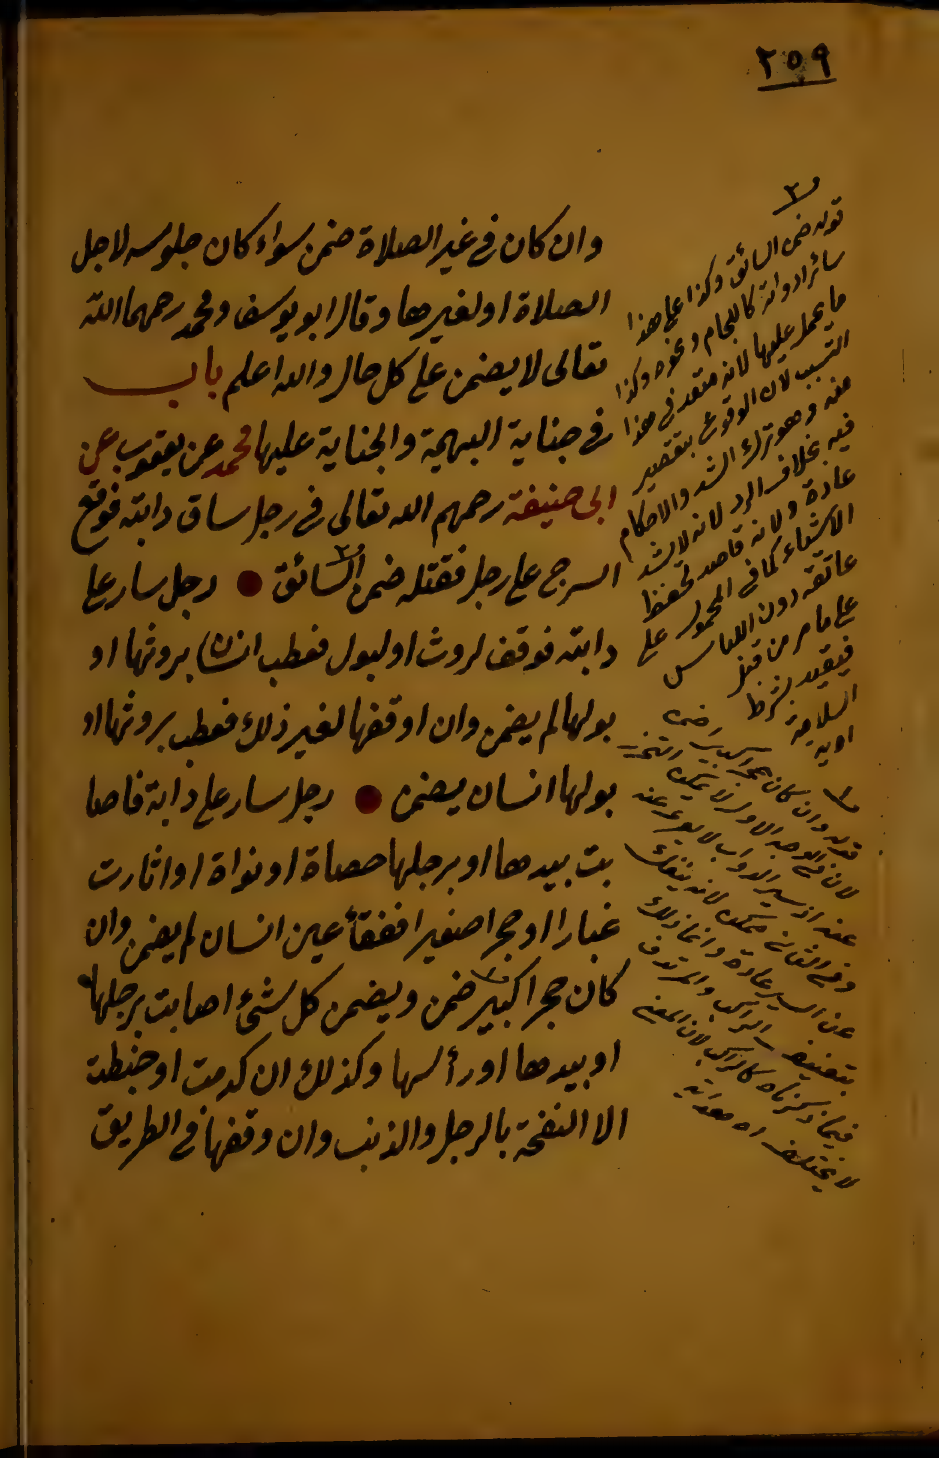 ٢٥٩
وان كان في غير الصلاة ضمن سواء كان جلوسه لاجل
الصلاة او لغيرها وقال ابو يوسف ومحمد رحمهما الله
تعالى لا يضمن على كل حال والله اعلم باب
في جناية البهيمة والجناية عليها محمد عن يعقوب عن
ابى حنيفة رحمهم الله تعالى في رجل ساق دابته فوقع
السرج على رجل فقتله ضمن السائق ● رجل سار على
٢
دابته فوقف لروث او لبول فعطب انسان بروثها او
بولها لم يضمن وان اوقفها لغير ذلك فعطب بروثها او
بولها انسان يضمن ● رجل سار على دابة فاصا
بت بيدها او برجلها حصاة او نواة او اثارت
غبارا او حجرا صغيرا ففقأ عين انسان لم يضمن وان
كان حجرا كبيرا ضمن ويضمن كل شئ اصابت برجلها
او بيدها او رأسها وكذلك ان كدمت او خبطت
الا النفحة بالرجل والذنب وان وقفها في الطريق
٢
قوله ضمن السائق وكذا على هذا
سائر ادواته كاللجام ونحوه وكذا
ما يحمل عليها لانه متعد في هذا
التسبب لان الوقوع بتقصير
منه وهو ترك الشد والاحكام
فيه بخلاف الرداء لانه لا يشد
عادة ولانه قاصد لحفظ
الاشياء كما في المحمول على
عاتقه دون اللباس
على ما مر من قبل
فيقيد بشرط
السلامة
قوله وان كان حجرا كبيرا ضمن
لان في الوجه الاول لا يمكن التحرز
عنه اذ سير الدواب لا يعرى عنه
وفي الثاني ممكن لانه ينفك
عن السير عادة وانما ذلك
بتعنيف الراكب والمرتدف
فيما ذكرناه كالراكب لان المعنى
لا يختلف اه هداية